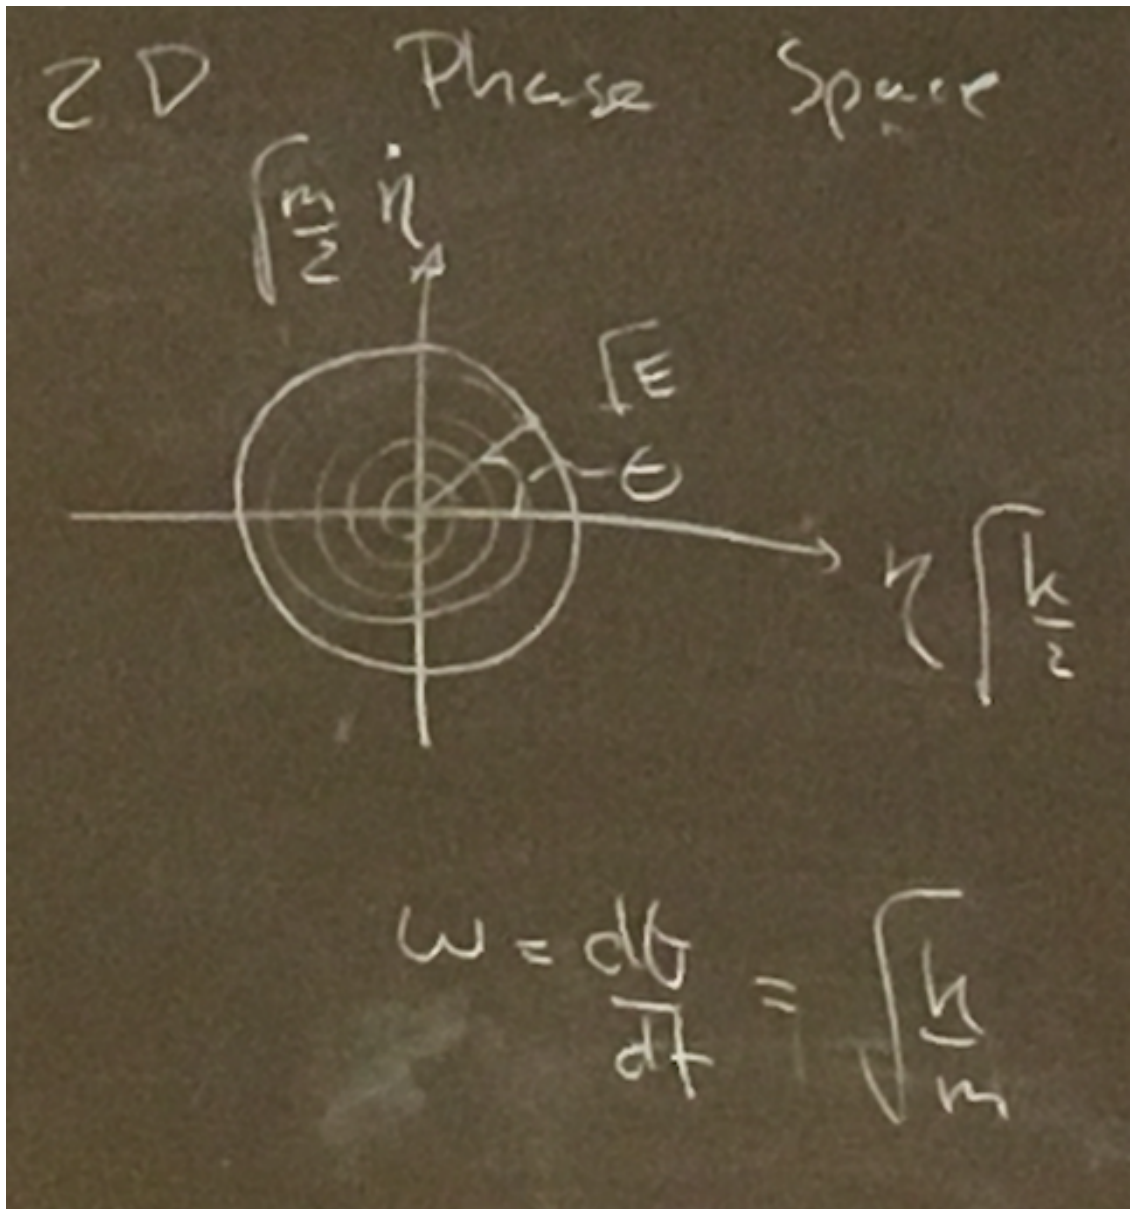 2D Phase Space
√(m/2) η̇
√E
θ
η √(k/2)
ω = dθ/dt = √(k/m)